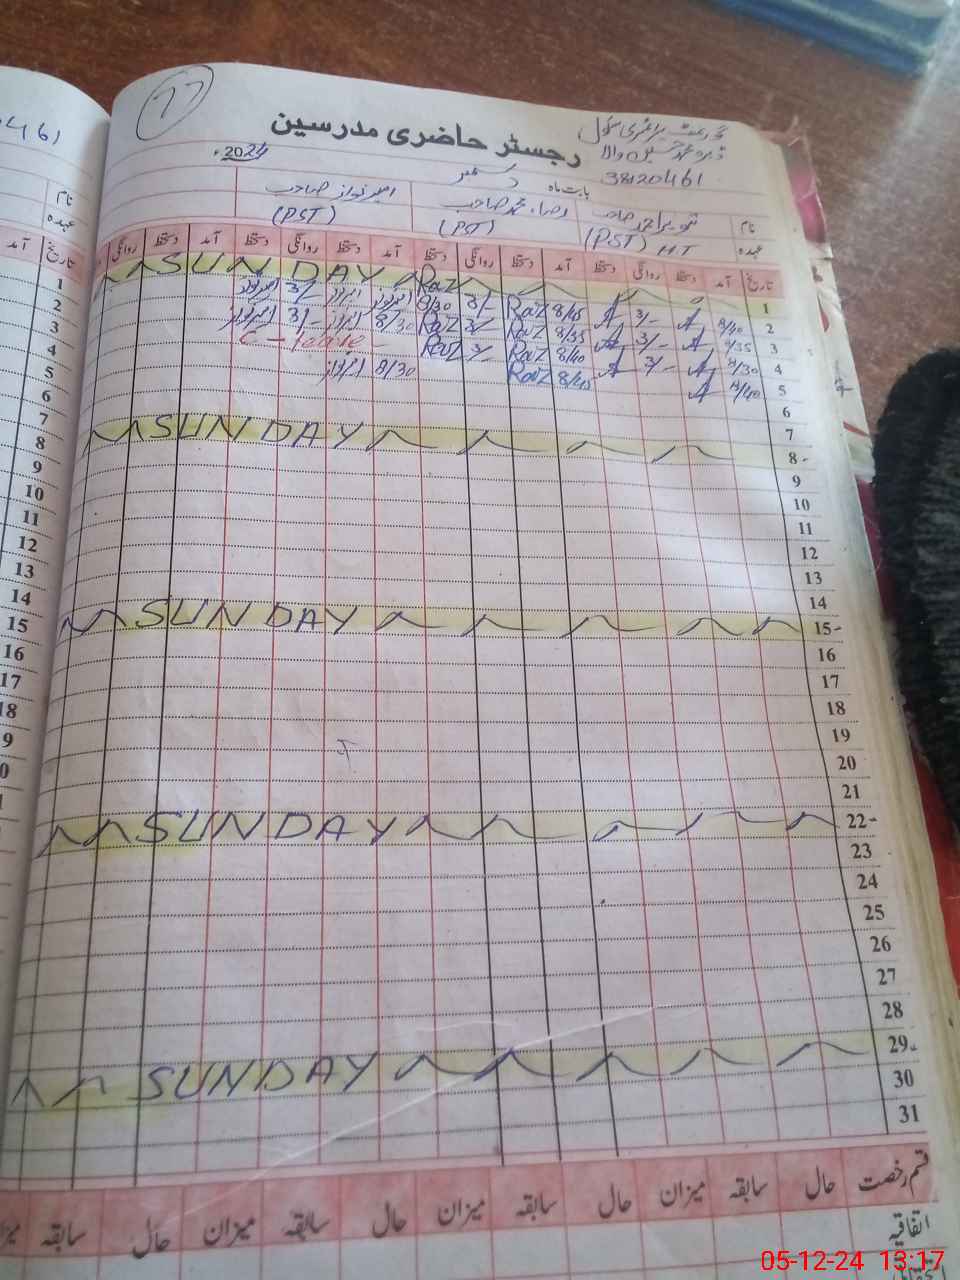 77
461
رجسٹر حاضری مدرسین
گورنمنٹ پرائمری سکول
ڈیرہ محمد حسین والا
38120461
بابت ماہ دسمبر 2024ء
نام تنویر احمد صاحب رضا محمد صاحب امیر نواز صاحب
عہدہ (PST) HT (PST) (PST)
تاریخ آمد دستخط روانگی دستخط آمد دستخط روانگی دستخط آمد دستخط روانگی دستخط آمد روانگی
1 SUNDAY
2 8/40 3/- 8/45 Raz 3/- Raz 8/30 امیر نواز 3/- امیر نواز
3 8/35 3/- 8/35 Raz 3/- Raz 8/30 امیر نواز 3/- امیر نواز
4 8/30 3/- 8/40 Raz 3/- Raz C-leave
5 8/40 8/45 Raz 8/30 امیر نواز
6
7
8 SUNDAY
9
10
11
12
13
14
15 SUNDAY
16
17
18
19
20
21
22 SUNDAY
23
24
25
26
27
28
29 SUNDAY
30
31
قسم رخصت حال سابقہ میزان حال سابقہ میزان حال سابقہ میزان حال سابقہ
اتفاقیہ
نام
عہدہ
تاریخ آمد
1
2
3
4
5
6
7
8
9
10
11
12
13
14
15
16
17
18
05-12-24 13:17